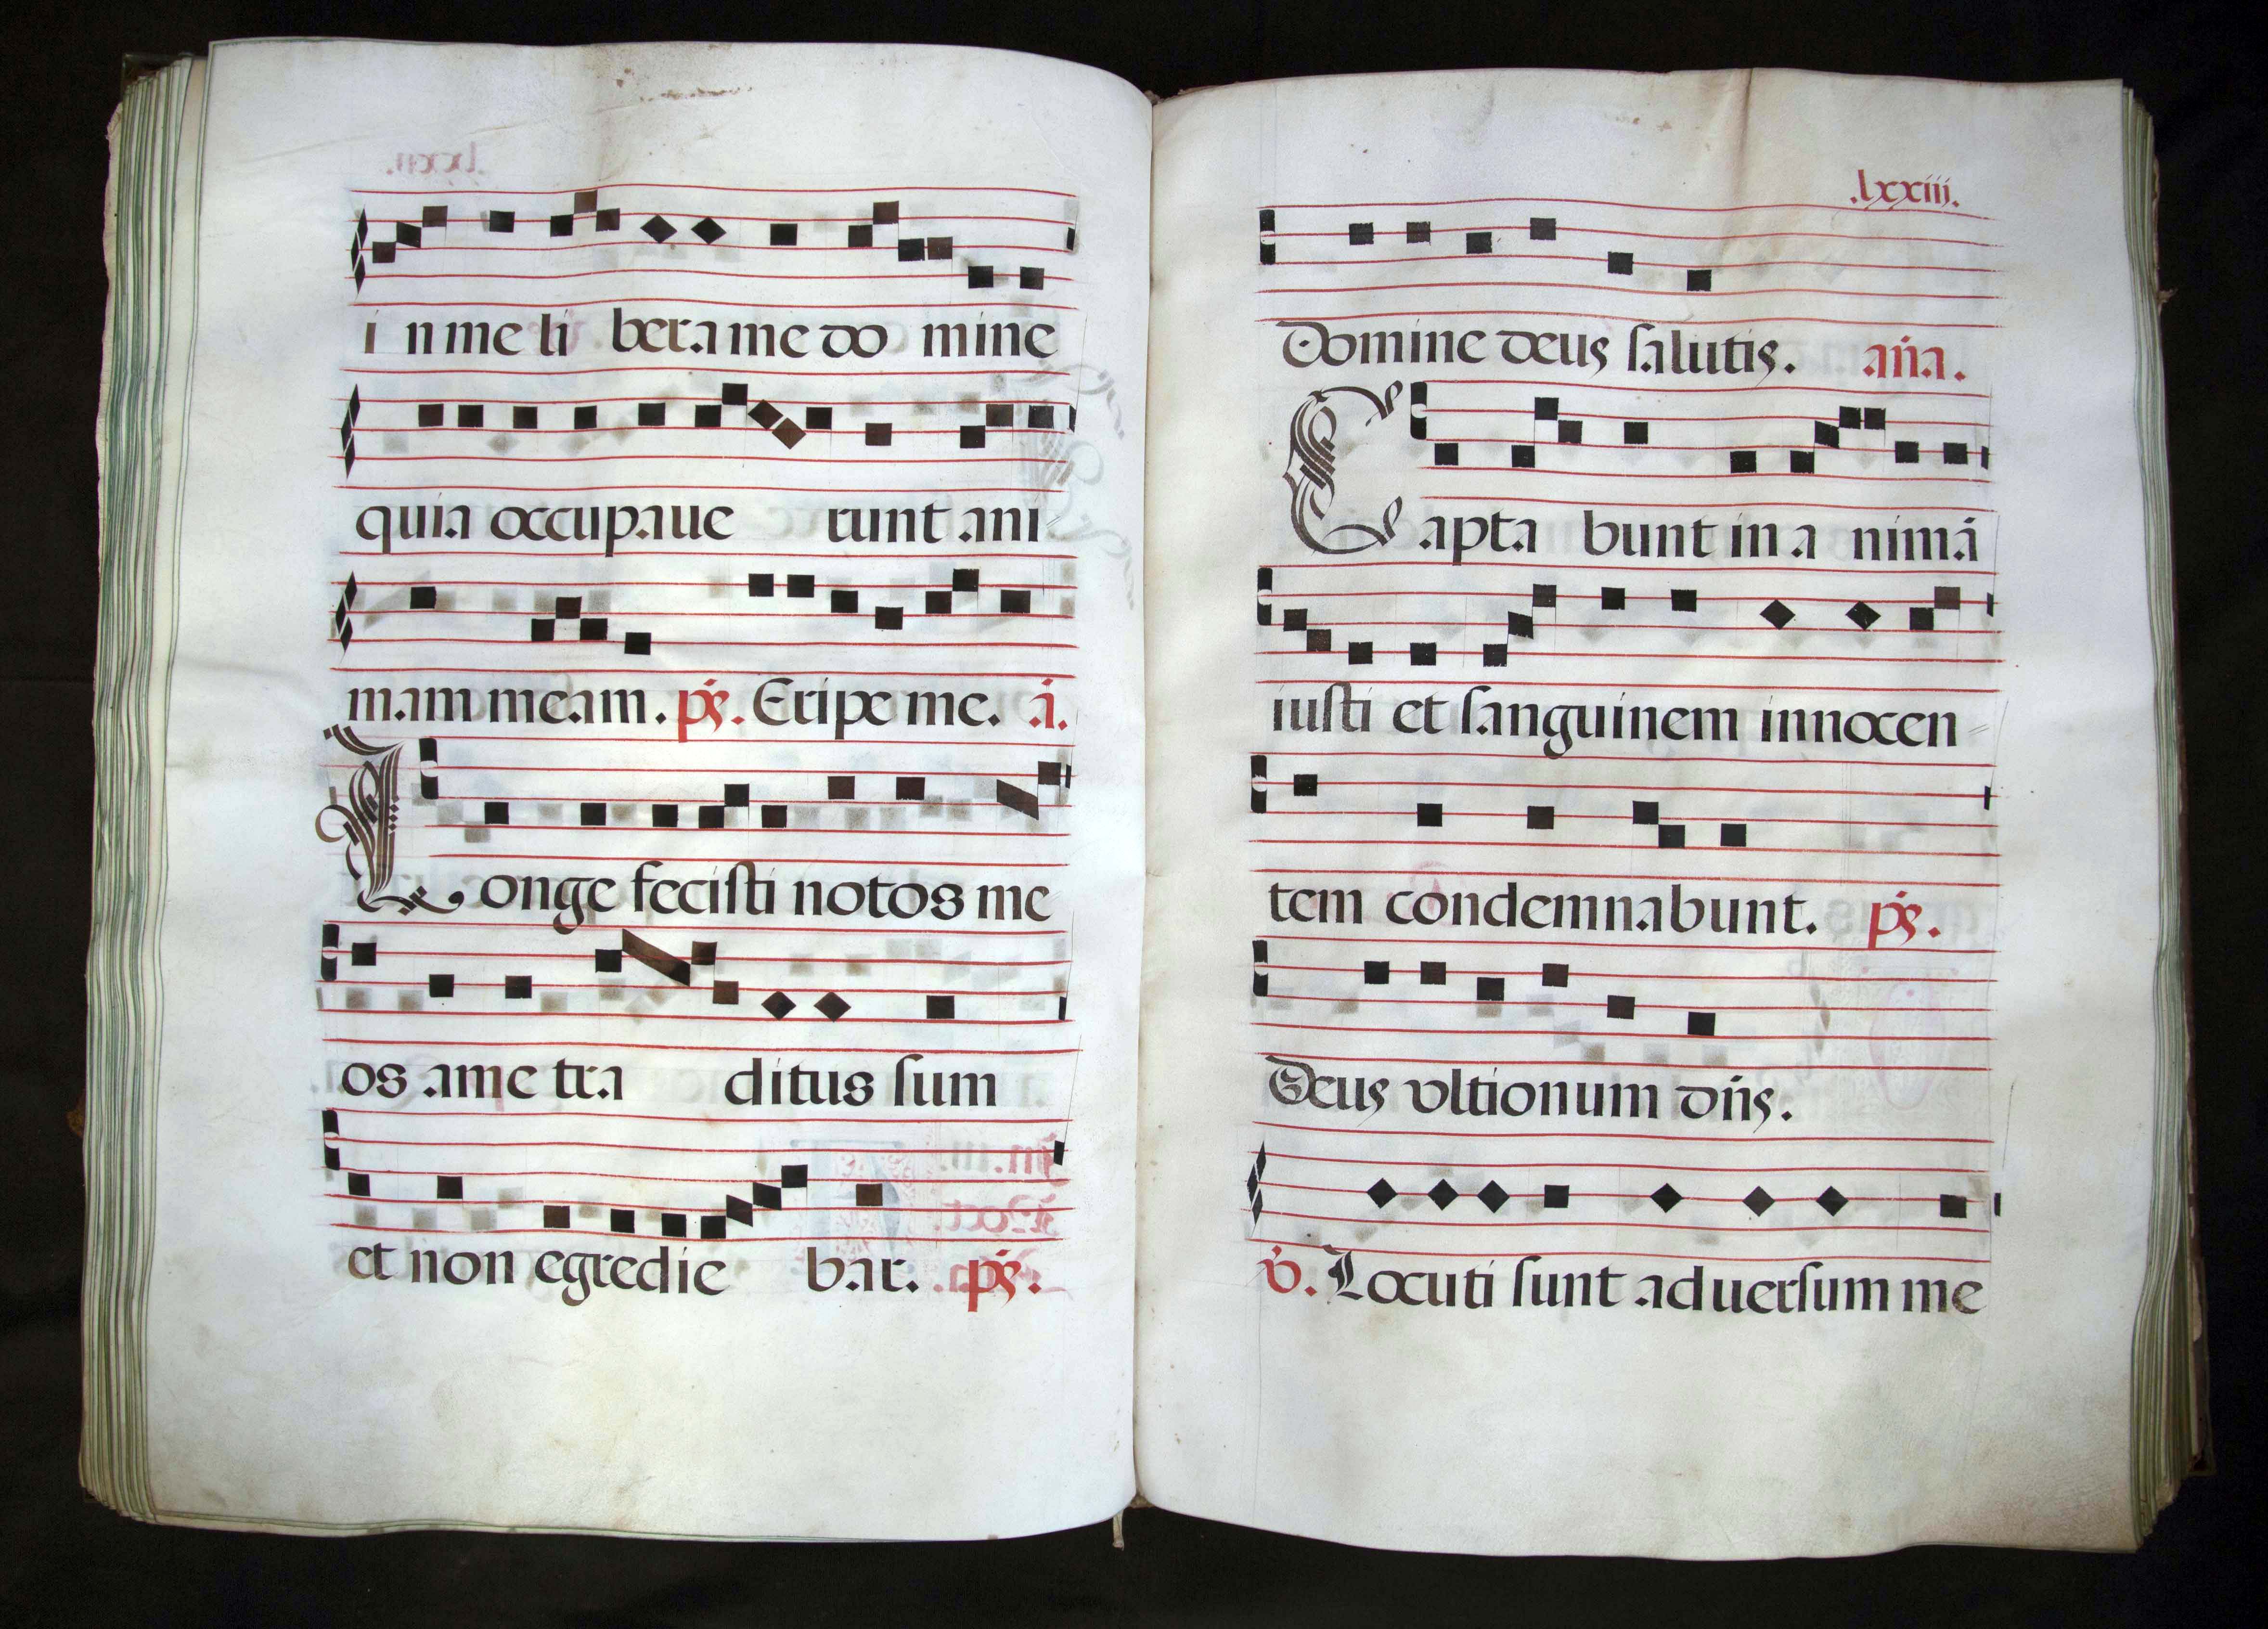 i n me li bera me do mine
quia occupaue runt ani
mam meam. ps. Eripe me. a.
Longe fecisti notos me
os a me tra ditus sum
et non egredie bar. ps.
.lxxiii.
Domine deus salutis. aña.
Capta bunt in a nimā
iusti et sanguinem innocen
tem condemnabunt. ps.
Deus vltionum dñs.
v. Locuti sunt aduersum me